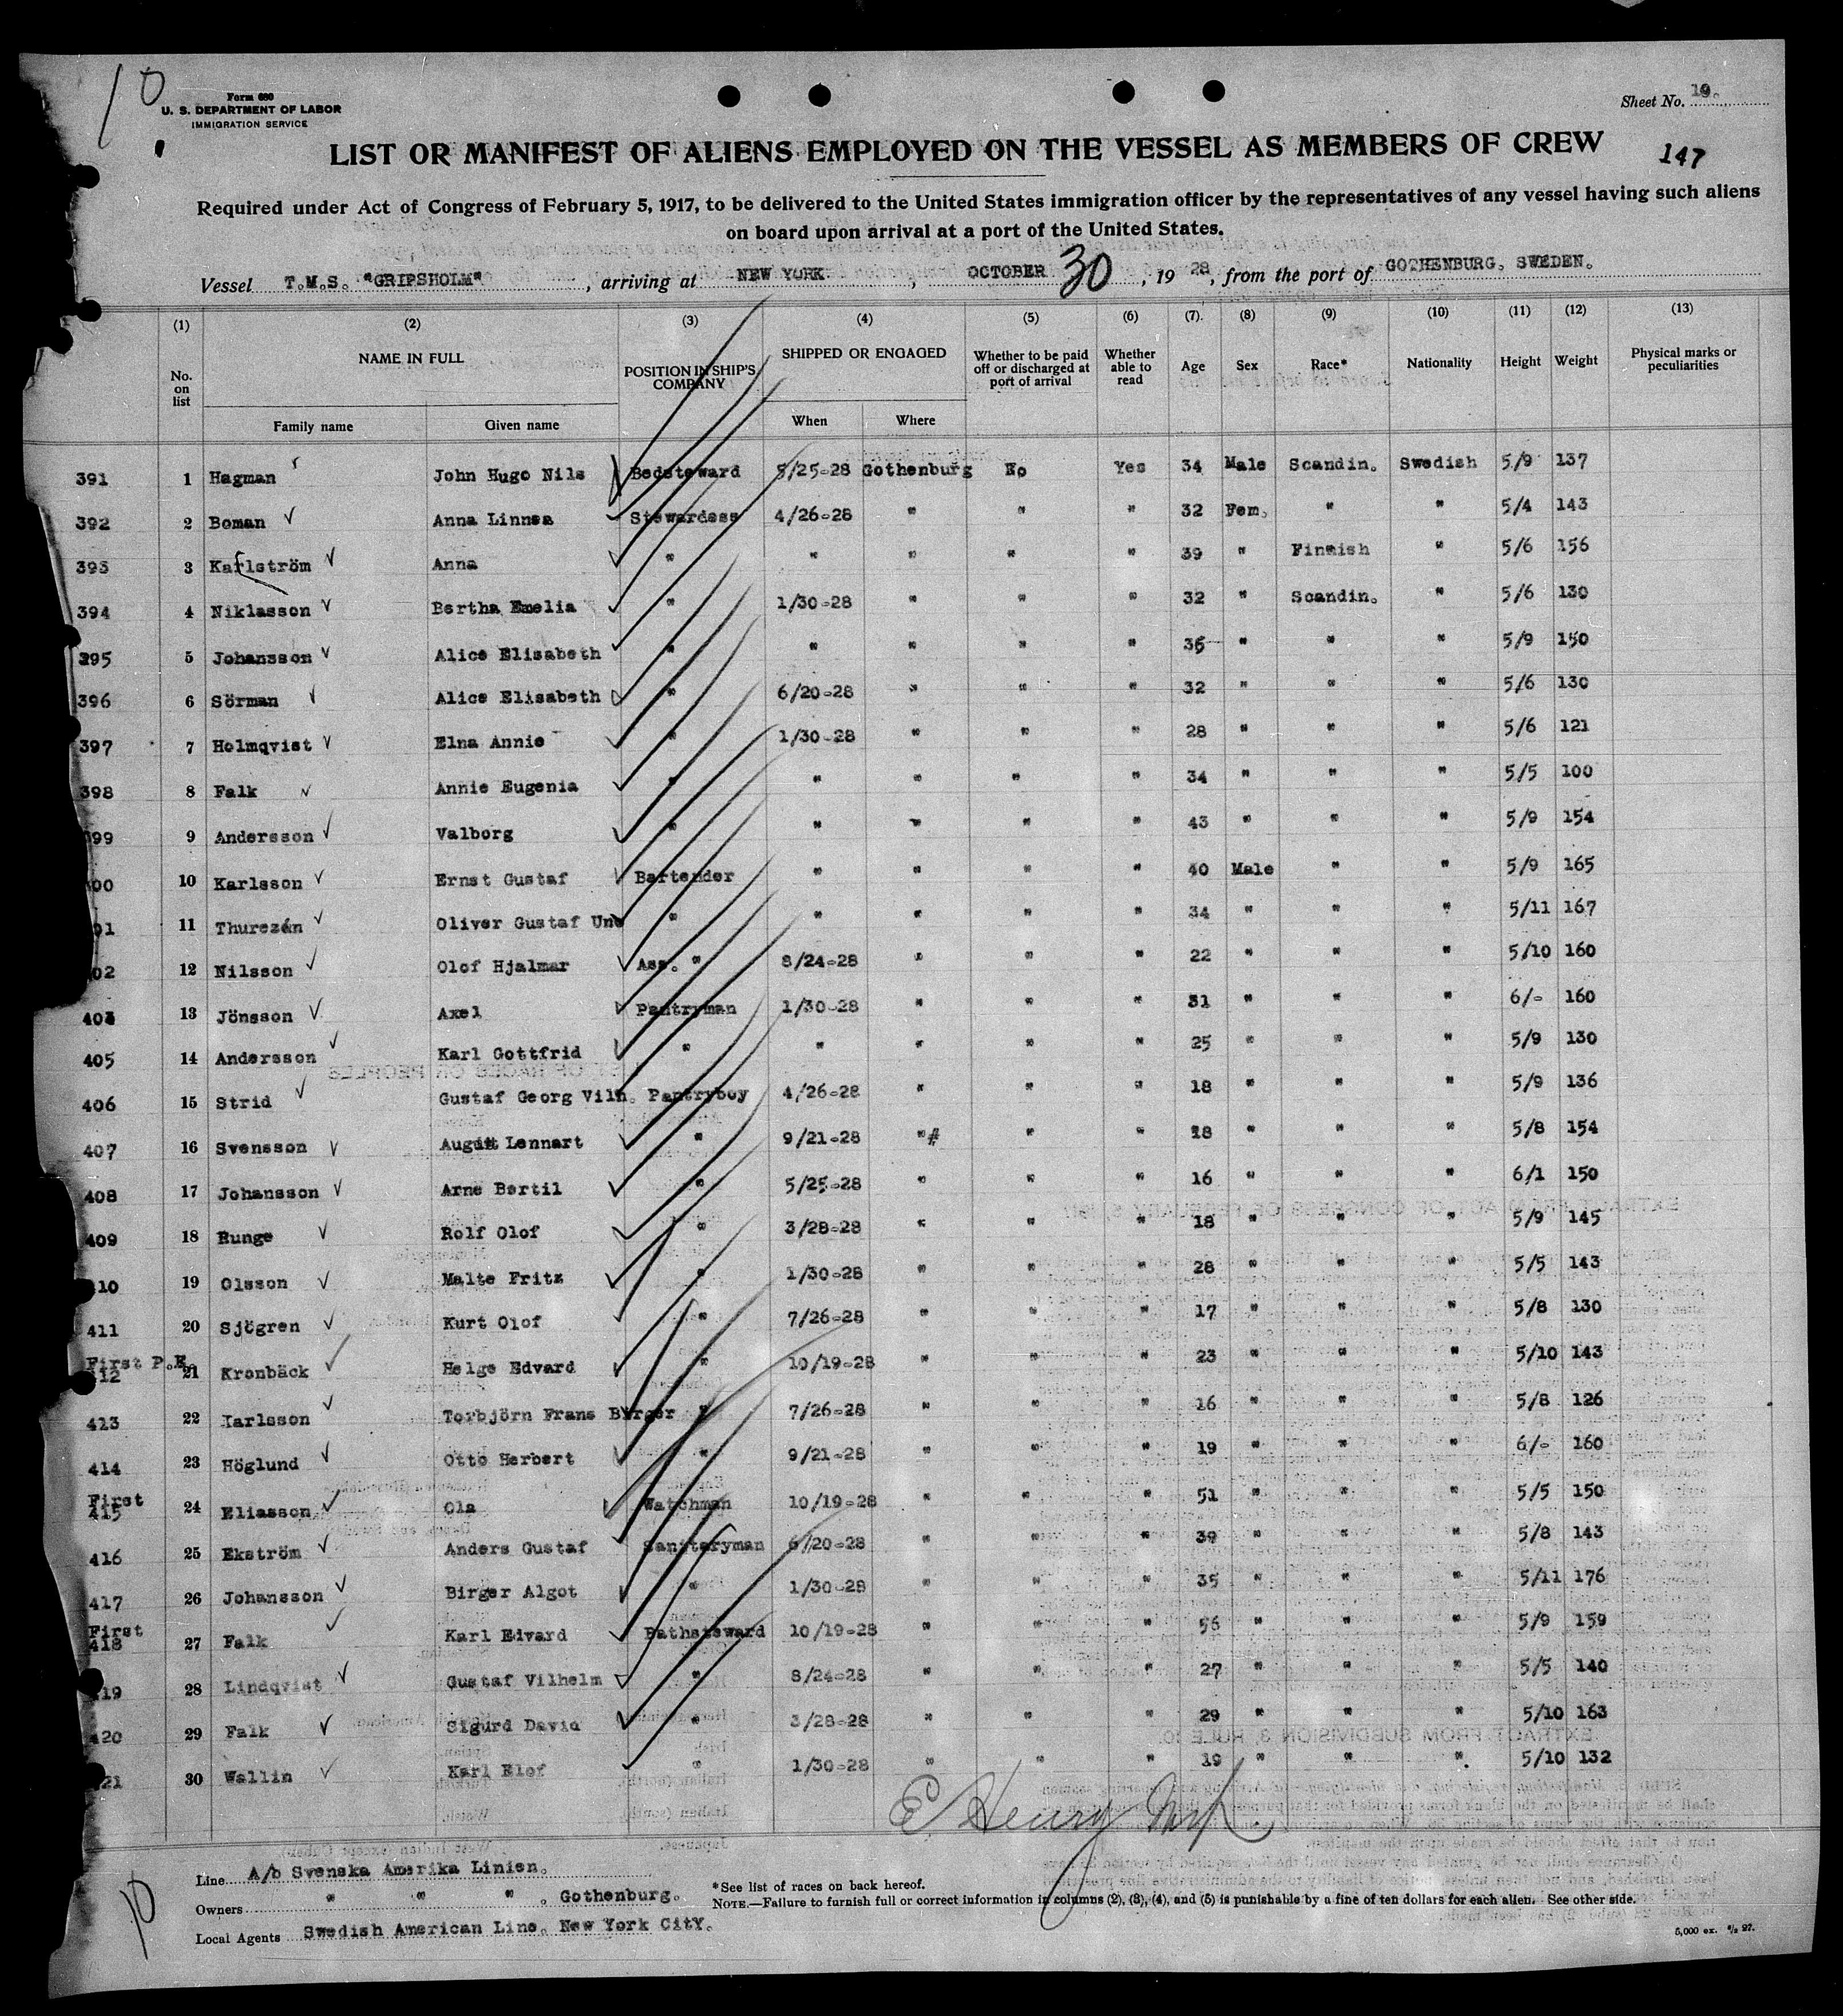 10
Form 680
U. S. DEPARTMENT OF LABOR
IMMIGRATION SERVICE
Sheet No. 10.
LIST OR MANIFEST OF ALIENS EMPLOYED ON THE VESSEL AS MEMBERS OF CREW
147
Required under Act of Congress of February 5, 1917, to be delivered to the United States immigration officer by the representatives of any vessel having such aliens
on board upon arrival at a port of the United States.
Vessel T.M.S. "GRIPSHOLM", arriving at NEW YORK, OCTOBER 30, 1928, from the port of GOTHENBURG, SWEDEN.
(1) (2) (3) (4) (5) (6) (7). (8) (9) (10) (11) (12) (13)
No. on list NAME IN FULL POSITION IN SHIP'S COMPANY SHIPPED OR ENGAGED Whether to be paid off or discharged at port of arrival Whether able to read Age Sex Race* Nationality Height Weight Physical marks or peculiarities
Family name Given name When Where
391 1 Hagman John Hugo Nils Bedsteward 5/25-28 Gothenburg No Yes 34 Male Scandin. Swedish 5/9 137
392 2 Boman Anna Linnea Stewardess 4/26-28 " " " 32 Fem. " " 5/4 143
393 3 Karlström Anna " " " " " 39 " Finnish " 5/6 156
394 4 Niklasson Bertha Emelia " 1/30-28 " " " 32 " Scandin. " 5/6 130
395 5 Johansson Alice Elisabeth " " " " " 36 " " " 5/9 150
396 6 Sörman Alice Elisabeth " 6/20-28 " " " 32 " " " 5/6 130
397 7 Holmqvist Elna Annie " 1/30-28 " " " 28 " " " 5/6 121
398 8 Falk Annie Eugenia " " " " " 34 " " " 5/5 100
99 9 Andersson Valborg " " " " " 43 " " " 5/9 154
00 10 Karlsson Ernst Gustaf Bartender " " " " 40 Male " " 5/9 165
01 11 Thurezán Oliver Gustaf Uno " " " " " 34 " " " 5/11 167
02 12 Nilsson Olof Hjalmar Ass. " 8/24-28 " " " 22 " " " 5/10 160
403 13 Jönsson Axel Pantryman 1/30-28 " " " 31 " " " 6/- 160
405 14 Andersson Karl Gottfrid " " " " " 25 " " " 5/9 130
406 15 Strid Gustaf Georg Vilh. Pantryboy 4/26-28 " " " 18 " " " 5/9 136
407 16 Svensson August Lennart " 9/21-28 "# " " 18 " " " 5/8 154
408 17 Johansson Arne Bertil " 5/25-28 " " " 16 " " " 6/1 150
409 18 Runge Rolf Olof " 3/28-28 " " " 18 " " " 5/9 145
10 19 Olsson Malte Fritz " 1/30-28 " " " 28 " " " 5/5 143
411 20 Sjögren Kurt Olof " 7/26-28 " " " 17 " " " 5/8 130
First P.E.
12 21 Kronbäck Helge Edvard " 10/19-28 " " " 23 " " " 5/10 143
413 22 Karlsson Torbjörn Frans Birger " 7/26-28 " " " 16 " " " 5/8 126
414 23 Höglund Otto Herbert " 9/21-28 " " " 19 " " " 6/- 160
First
415 24 Eliasson Ola Watchman 10/19-28 " " " 51 " " " 5/5 150
416 25 Ekström Anders Gustaf Sanitaryman 6/20-28 " " " 39 " " " 5/8 143
417 26 Johansson Birger Algot " 1/30-28 " " " 35 " " " 5/11 176
First
418 27 Falk Karl Edvard Bathsteward 10/19-28 " " " 56 " " " 5/9 159
419 28 Lindqvist Gustaf Vilhelm " 8/24-28 " " " 27 " " " 5/5 140
420 29 Falk Sigurd David " 3/28-28 " " " 29 " " " 5/10 163
21 30 Wallin Karl Elof " 1/30-28 " " " 19 " " " 5/10 132
E Henry
10
Line A/b Svenska Amerika Linien.
Owners " " ". Gothenburg.
Local Agents Swedish American Line. New York City.
*See list of races on back hereof.
NOTE.—Failure to furnish full or correct information in columns (2), (3), (4), and (5) is punishable by a fine of ten dollars for each alien. See other side.
5,000 ex. 9/2 27.